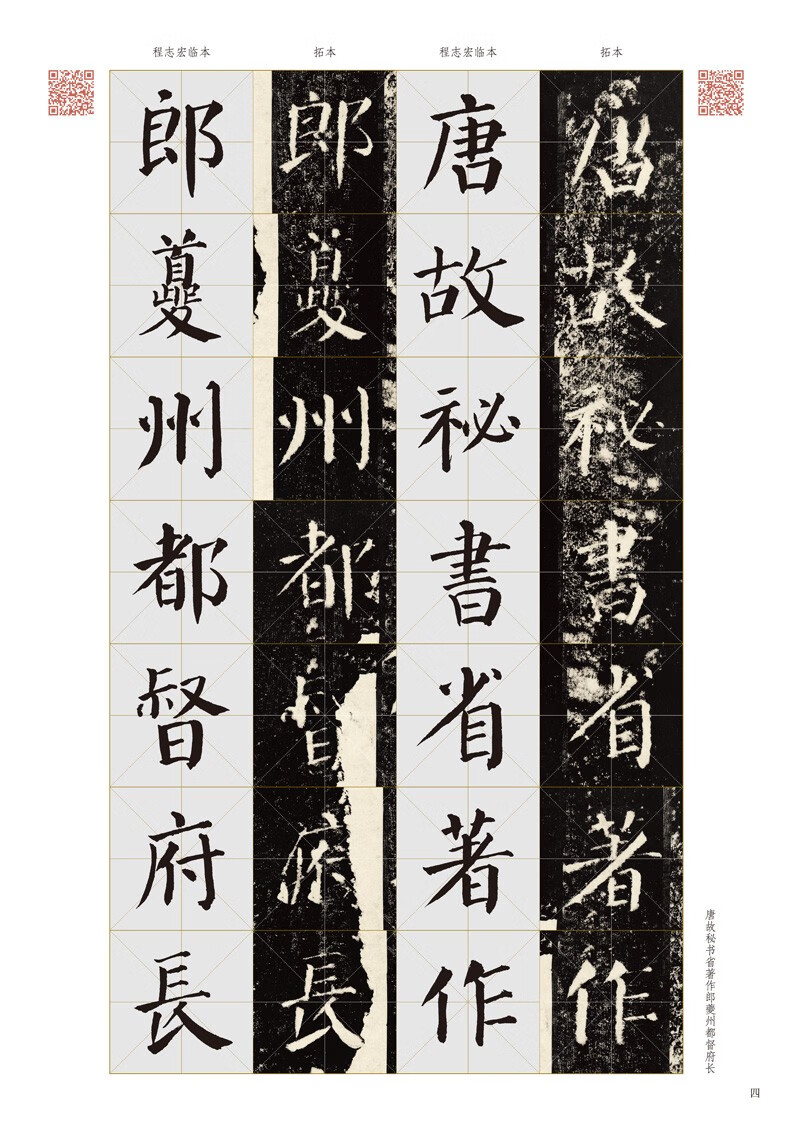 程志宏临本 拓本 程志宏临本 拓本
唐故秘書省著作
唐故秘書省著作
郎夔州都督府長
郎夔州都督府長
唐故秘书省著作郎夔州都督府长
四